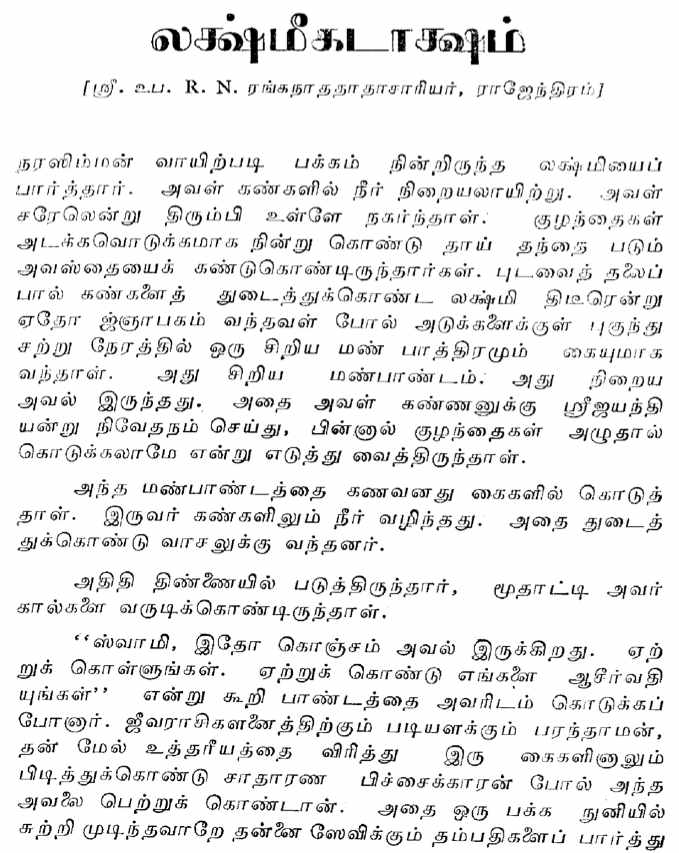 லக்ஷ்மீகடாக்ஷம்
[ஸ்ரீ. உப. R. N. ரங்கநாததாதாசாரியர், ராஜேந்திரம்]
நரஸிம்மன் வாயிற்படி பக்கம் நின்றிருந்த லக்ஷ்மியைப்
பார்த்தார். அவள் கண்களில் நீர் நிறையலாயிற்று. அவள்
சரேலென்று திரும்பி உள்ளே நகர்ந்தாள். குழந்தைகள்
அடக்கவொடுக்கமாக நின்று கொண்டு தாய் தந்தை படும்
அவஸ்தையைக் கண்டுகொண்டிருந்தார்கள். புடவைத் தலைப்
பால் கண்களைத் துடைத்துக்கொண்ட லக்ஷ்மி திடீரென்று
ஏதோ ஜ்ஞாபகம் வந்தவள் போல் அடுக்களைக்குள் புகுந்து
சற்று நேரத்தில் ஒரு சிறிய மண் பாத்திரமும் கையுமாக
வந்தாள். அது சிறிய மண்பாண்டம். அது நிறைய
அவல் இருந்தது. அதை அவள் கண்ணனுக்கு ஸ்ரீஜயந்தி
யன்று நிவேதநம் செய்து, பின்னால் குழந்தைகள் அழுதால்
கொடுக்கலாமே என்று எடுத்து வைத்திருந்தாள்.
அந்த மண்பாண்டத்தை கணவனது கைகளில் கொடுத்
தாள். இருவர் கண்களிலும் நீர் வழிந்தது. அதை துடைத்
துக்கொண்டு வாசலுக்கு வந்தனர்.
அதிதி திண்ணையில் படுத்திருந்தார், மூதாட்டி அவர்
கால்களை வருடிக்கொண்டிருந்தாள்.
‘‘ஸ்வாமி, இதோ கொஞ்சம் அவல் இருக்கிறது. ஏற்
றுக் கொள்ளுங்கள். ஏற்றுக் கொண்டு எங்களை ஆசீர்வதி
யுங்கள்’’ என்று கூறி பாண்டத்தை அவரிடம் கொடுக்கப்
போனார். ஜீவராசிகளனைத்திற்கும் படியளக்கும் பரந்தாமன்,
தன் மேல் உத்தரீயத்தை விரித்து இரு கைகளினாலும்
பிடித்துக்கொண்டு சாதாரண பிச்சைக்காரன் போல் அந்த
அவலை பெற்றுக் கொண்டான். அதை ஒரு பக்க நுனியில்
சுற்றி முடிந்தவாறே தன்னை ஸேவிக்கும் தம்பதிகளைப் பார்த்து